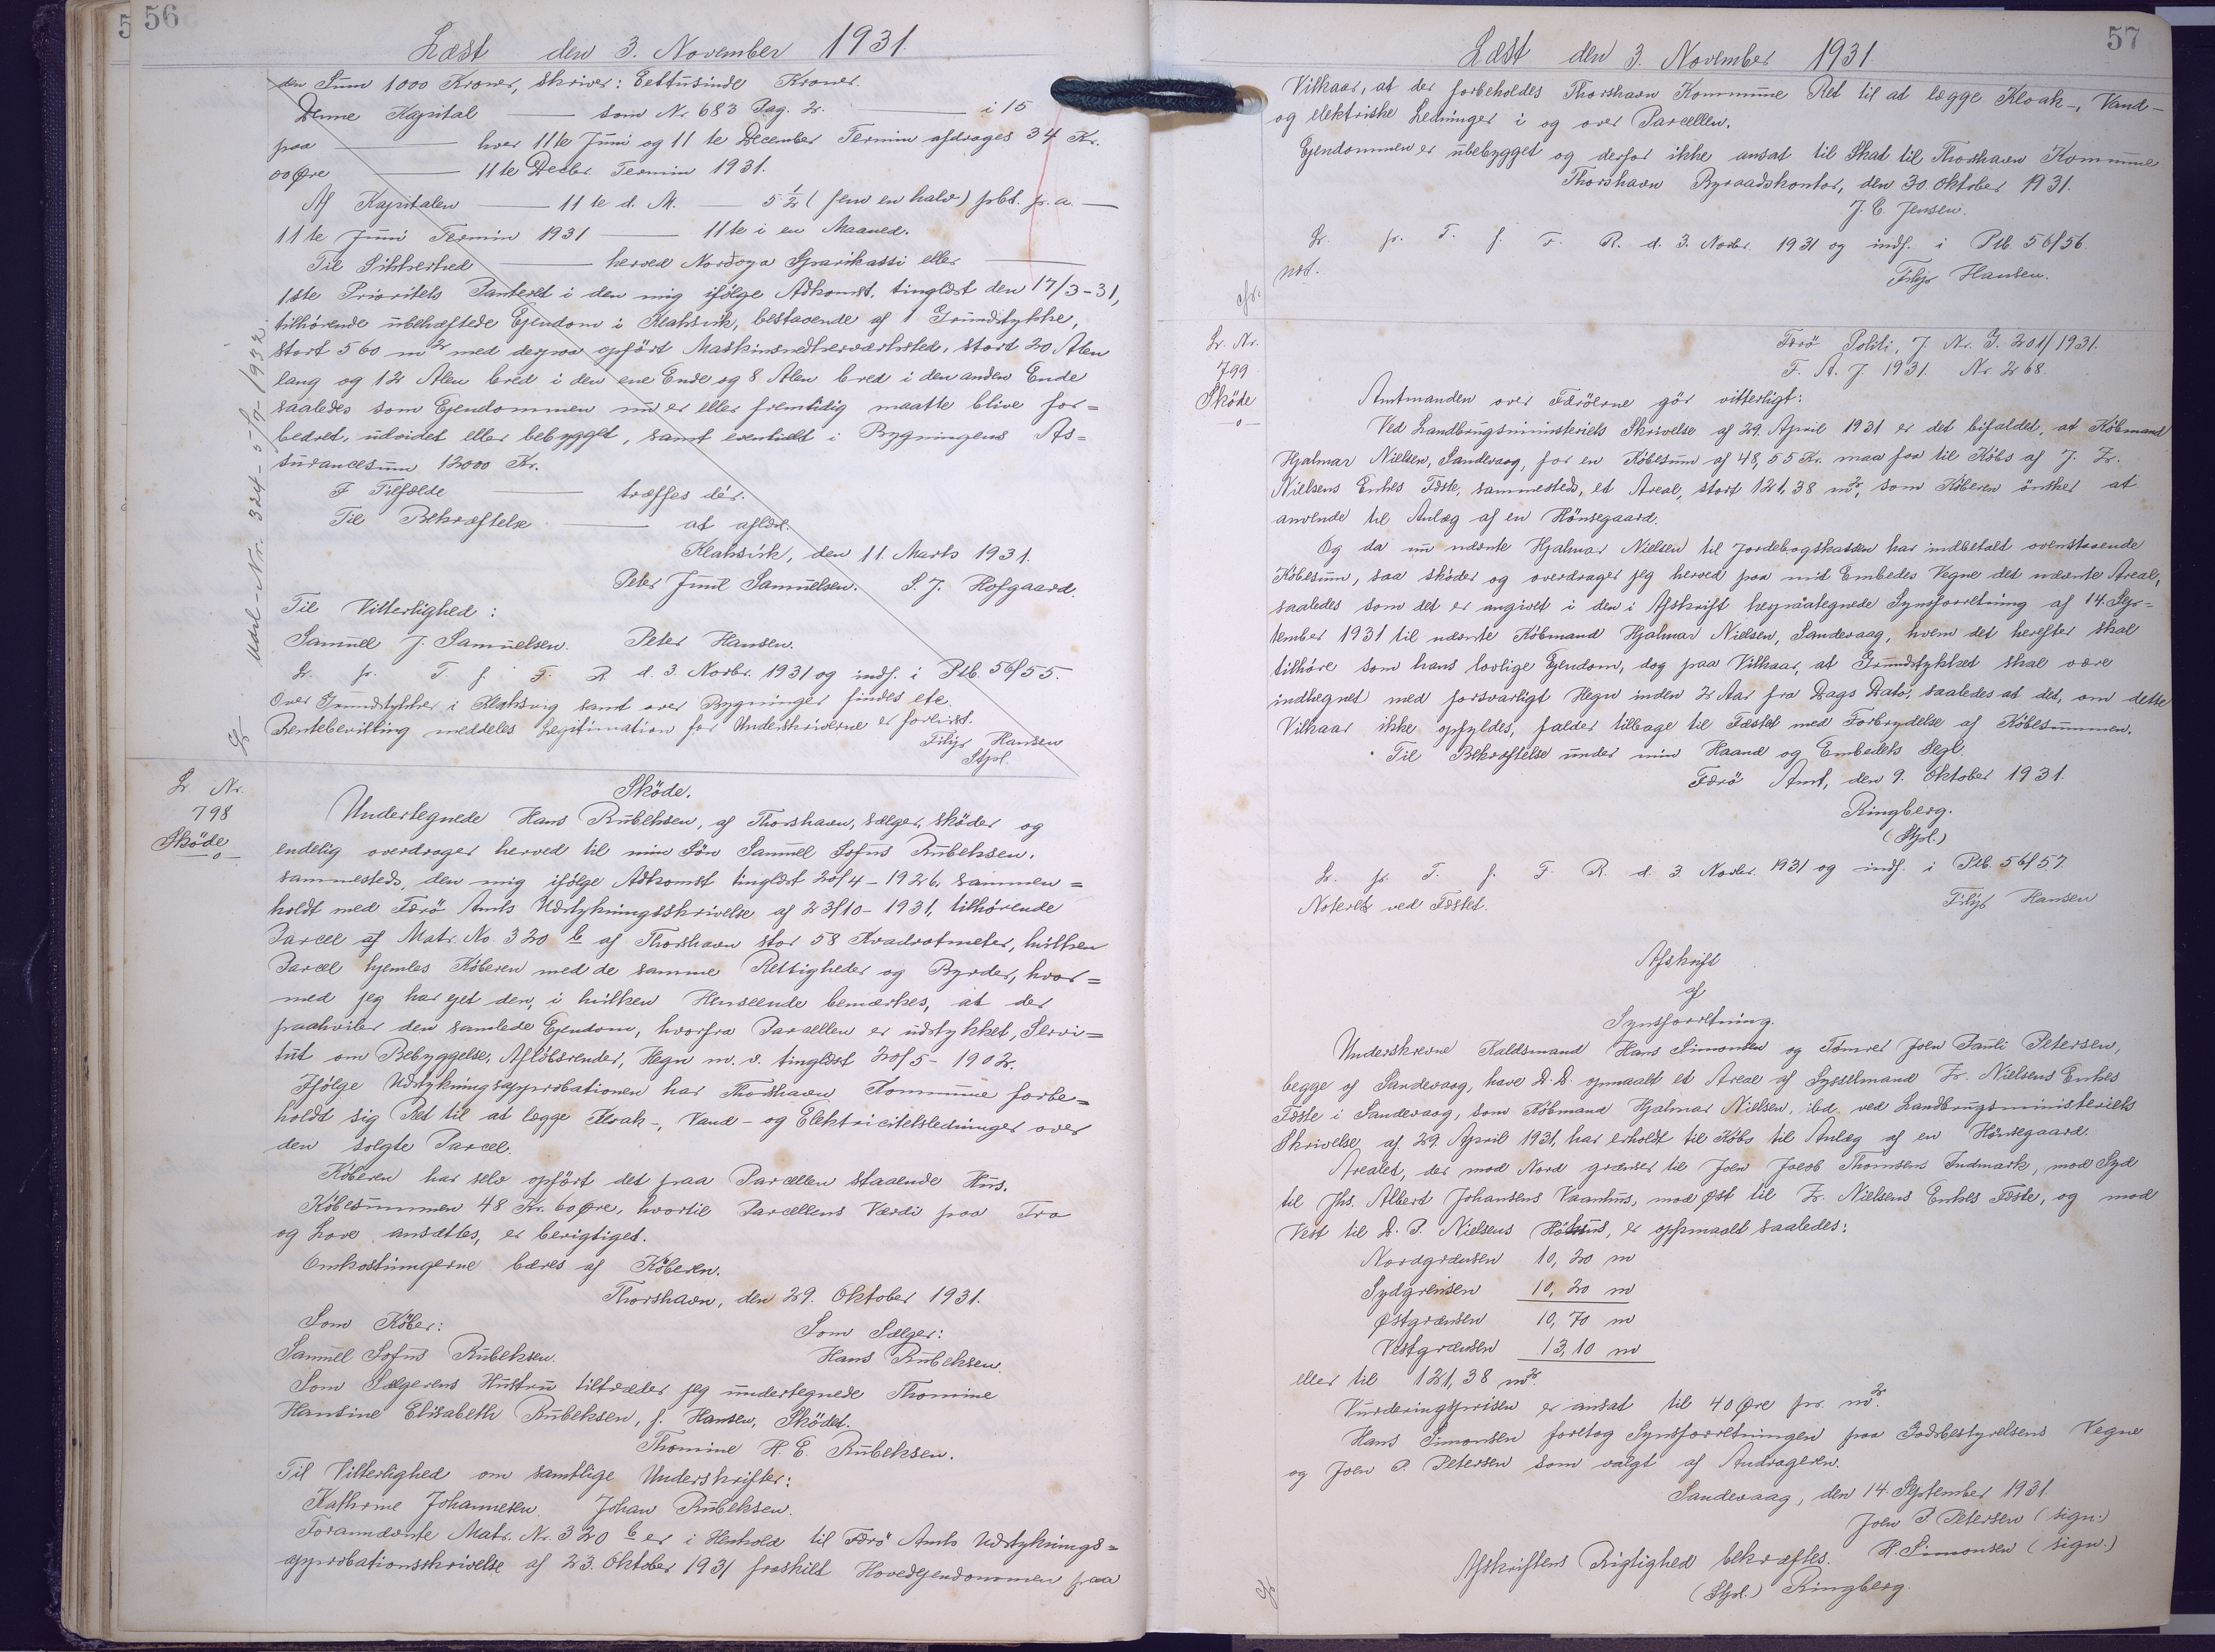 56
Læst den 3. November 1931.
den Sum 1000 Kroner, skriver: Eettusinde Kroner.
Denne Kapital — som Nr. 683 Pag. 2. — i 15
paa — hver 11te Juni og 11te December Termin afdrages 34 Kr.
00 Øre — 11te Decbr. Termin 1931.
Af Kapitalen — 11te d. M. — 5 1/2 (fem en halv) pCt. p. a. —
11te Juni Termin 1931 — 11te i en Maaned.
Til Sikkerhed — herved Nordoya Sparikassi eller —
1ste Prioritets Panteret i den mig ifølge Adkomst, tinglæst den 17/3-31,
tilhørende ubehæftede Ejendom i Klaksvik, bestaaende af 1 Grundstykke,
stort 560 m² med derpaa opført Maskinsnedkerværksted, stort 20 Alen
lang og 12 Alen bred i den ene Ende og 8 Alen bred i den anden Ende
saaledes som Ejendommen nu er eller fremtidig maatte blive for=
bedret, udvidet eller bebygget, samt eventuelt i Bygningens As=
surancesum 12000 Kr.
I Tilfælde — træffes dér.
Til Bekræftelse — at aflæst.
Klaksvik, den 11. Marts 1931.
Peter Juul Samuelsen. S. J. Hofgaard.
Til Vitterlighed:
Samuel J. Samuelsen. Peter Hansen.
L. p. T f F. R d. 3. Novbr. 1931 og indf. i Ptb. 56/55.
Over Grundstykker i Klaksvig samt over Bygninger findes ete.
Rentebevilling meddeles Legitimation for Underskriverne er forevist.
Filip Hansen
Stpl.
Udsl-Nr. 324 - 5/7-1932.
L Nr.
798
Sköde
Sköde.
Undertegnede Hans Rubeksen, af Thorshavn, sælger, sköder og
endelig overdrager herved til min Søn Samuel Sofus Rubeksen.
sammesteds, den mig ifølge Adkomst tinglæst 20/4-1926, sammen=
holdt med Færö Amts Udstykningsskrivelse af 23/10-1931, tilhørende
Parcel af Matr. No. 320 b af Thorshavn stor 58 Kvadratmeter, hvilken
Parcel hjemles Köberen med de samme Rettigheder og Byrder, hvor=
med jeg har ejet den, i hvilken Henseende bemærkes, at der
paahviler den samlede Ejendom, hvorfra Parcellen er udstykket, Servi=
tut om Bebyggelse, Aflöbsrender, Hegn m. v. tinglæst 20/5-1902.
Ifølge Udstykningsapprobationen har Thorshavn Kommune forbe=
holdt sig Ret til at lægge Kloak-, Vand- og Elektricitetsledninger over
den solgte Parcel.
Köberen har selv opført det paa Parcellen staaende Hus.
Købesummen 48 Kr. 60 Øre, hvortil Parcellens Værdi paa Tro
og Love ansættes, er berigtiget.
Omkostningerne bæres af Köberen.
Thorshavn, den 29. Oktober 1931.
Som Køber: Som Sælger:
Samuel Sofus Rubeksen. Hans Rubeksen.
Som Sælgerens Hustru tiltræder jeg undertegnede Thomine
Hansine Elisabeth Rubeksen, f. Hansen, Sködet.
Thomine H. E. Rubeksen.
Til Vitterlighed om samtlige Underskrifter:
Kathrine Johannesen. Johan Rubeksen.
Forannævnte Matr. Nr. 320 b er i Henhold til Færö Amts Udstyknings=
approbationsskrivelse af 23. Oktober 1931 fraskilt Hovedejendommen paa
57
Læst den 3. November 1931
Vilkaar, at der forbeholdes Thorshavn Kommune Ret til at lægge Kloak-, Vand-
og elektriske Ledninger i og over Parcellen.
Ejendommen er ubebygget og derfor ikke ansat til Skat til Thorshavn Kommune
Thorshavn Byraadskontor, den 30. Oktober 1931.
J. C. Jensen.
L. p. T. f. F. R. d. 3. Novbr. 1931 og indf. i Ptb. 56/56.
not.
Filip Hansen.
cfr.
L. Nr.
799
Sköde
Færö Politi, J. Nr. G. 201/1931.
F. A. J. 1931. Nr. 268.
Amtmanden over Færöerne gör vitterligt:
Ved Landbrugsministeriets Skrivelse af 29. April 1931 er det bifaldet, at Köbmand
Hjalmar Nielsen, Sandevaag, for en Købesum af 48,55 Kr. maa faa til Købs af J. Fr.
Nielsens Enkes Fæste, sammesteds, et Areal, stort 121,38 m², som Köberen önsker at
anvende til Anlæg af en Hönsegaard.
Og da nu nævnte Hjalmar Nielsen til Jordebogskassen har indbetalt ovenstaaende
Købesum, saa sköder og overdrager jeg herved paa mit Embedes Vegne det nævnte Areal,
saaledes som det er angivet i den i Afskrift herpaategnede Synsforretning af 14. Sep=
tember 1931 til nævnte Købmand Hjalmar Nielsen, Sandevaag, hvem det herefter skal
tilhöre som hans lovlige Ejendom, dog paa Vilkaar, at Grundstykket skal være
indhegnet med forsvarligt Hegn inden 2 Aar fra Dags Dato, saaledes at det, om dette
Vilkaar ikke opfyldes, falder tilbage til Fæstet med Forbrydelse af Købesummen.
Til Bekræftelse under min Haand og Embedets Segl.
Færö Amt, den 9. Oktober 1931.
Ringberg.
(Stpl.)
L. p. T. f. F. R. d. 3. Novbr. 1931 og indf. i Ptb. 56/57.
Noteret ved Fæstet. Filip Hansen
Afskrift
af
Synsforretning.
Underskrevne Kaldsmand Hans Simonsen og Tømrer Joen Pauli Petersen,
begge af Sandevaag, have D. D. opmaalt et Areal af Sysselmand Fr. Nielsens Enkes
Fæste i Sandevaag, som Købmand Hjalmar Nielsen, ibd. ved Landbrugsministeriets
Skrivelse af 29. April 1931, har erholdt til Købs til Anlæg af en Hönsegaard.
Arealet, der mod Nord grænser til Joen Jacob Thomsens Indmark, mod Syd
til Jhs. Albert Johansens Vaanhus, mod Øst til Fr. Nielsens Enkes Fæste, og mod
Vest til D. P. Nielsens er opmaalt saaledes:
Nordgrænsen 10,20 m
Sydgrænsen 10,20 m
Østgrænsen 10,70 m
Vestgrænsen 13,10 m
eller til 121,38 m².
Vurderingsprisen er ansat til 40 Øre pr. m².
Hans Simonsen foretog Synsforretningen paa Godsbestyrelsens Vegne
og Joen P. Petersen som valgt af Andrageren.
Sandevaag, den 14. September 1931.
Joen P. Petersen (sign.)
H. Simonsen (sign.)
Afskriftens Rigtighed bekræftes.
(Stpl.) Ringberg.